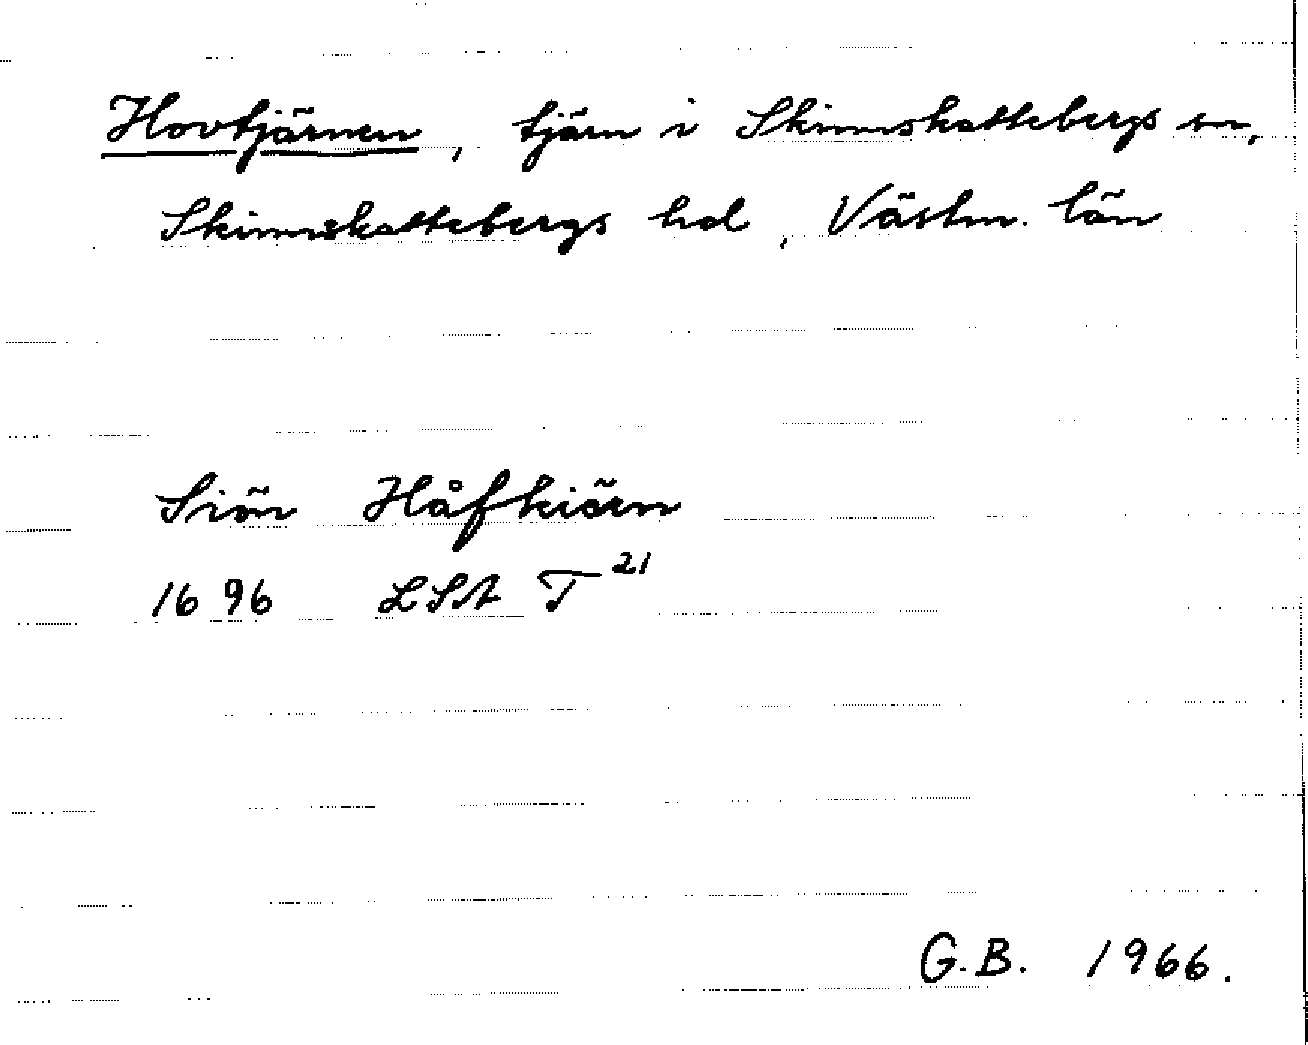 Hovtjärnen, tjärn i Skinnskattebergs sn,
Skinnskattebergs hd, Västm. län
Siön Håfkiörn
1696 LSA T 21
G.B. 1966.